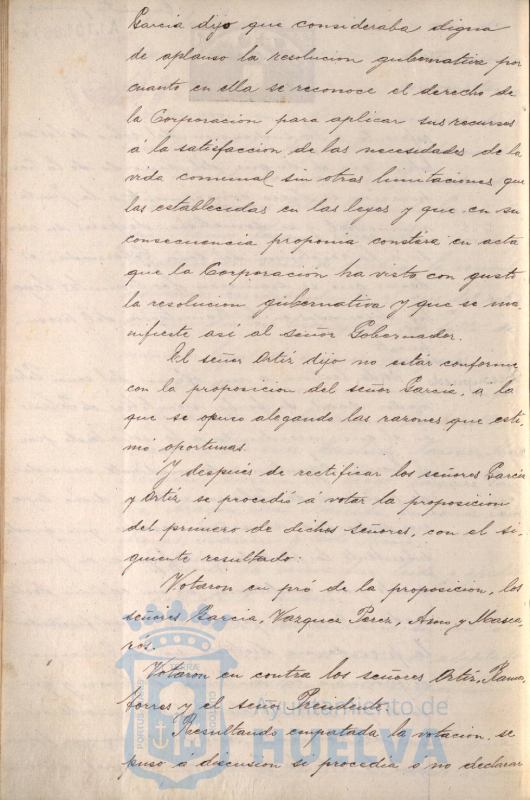 García dijo que consideraba digna
de aplauso la resolucion gubernativa por
cuanto en ella se reconoce el derecho de
la Corporacion para aplicar sus recursos
á la satisfaccion de las necesidades de la
vida comunal sin otras limitaciones que
las establecidas en las leyes y que en su
consecuencia proponia constara en acta
que la Corporación ha visto con gusto
la resolucion gubernativa y que se ma-
nifieste así al señor Gobernador.
El señor Ortíz dijo no estár conforme
con la proposicion del señor García, a la
que se opuso alegando las razones que esti-
mó oportunas.
Y después de rectificar los señores García
y Ortíz se procedió á votar la proposicion
del primero de dichos señores, con el si-
guiente resultado:
Votaron en pró de la proposicion, los
señores Garcia, Vazquez Perez, y Masca-
ros.
Votaron en contra los señores Ortíz,
torres y el señor Presidente.
Resultando empatada la votacion se
puso a discusion si procedia o no declarar
Ayuntamiento de
HUELVA